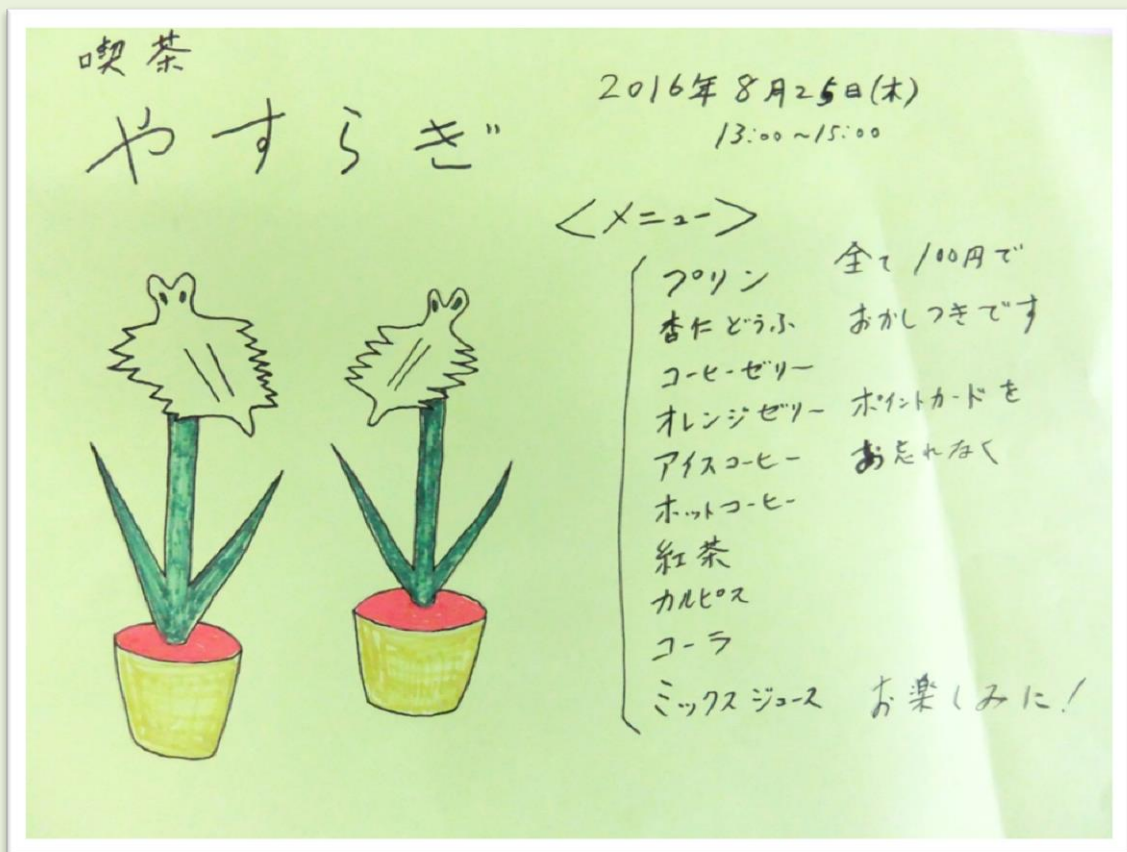 喫茶
やすらぎ
2016年8月25日(木)
13:00~15:00
<メニュー>
プリン
杏仁どうふ
コーヒーゼリー
オレンジゼリー
アイスコーヒー
ホットコーヒー
紅茶
カルピス
コーラ
ミックスジュース
全て100円で
おかしつきです
ポイントカードを
お忘れなく
お楽しみに!